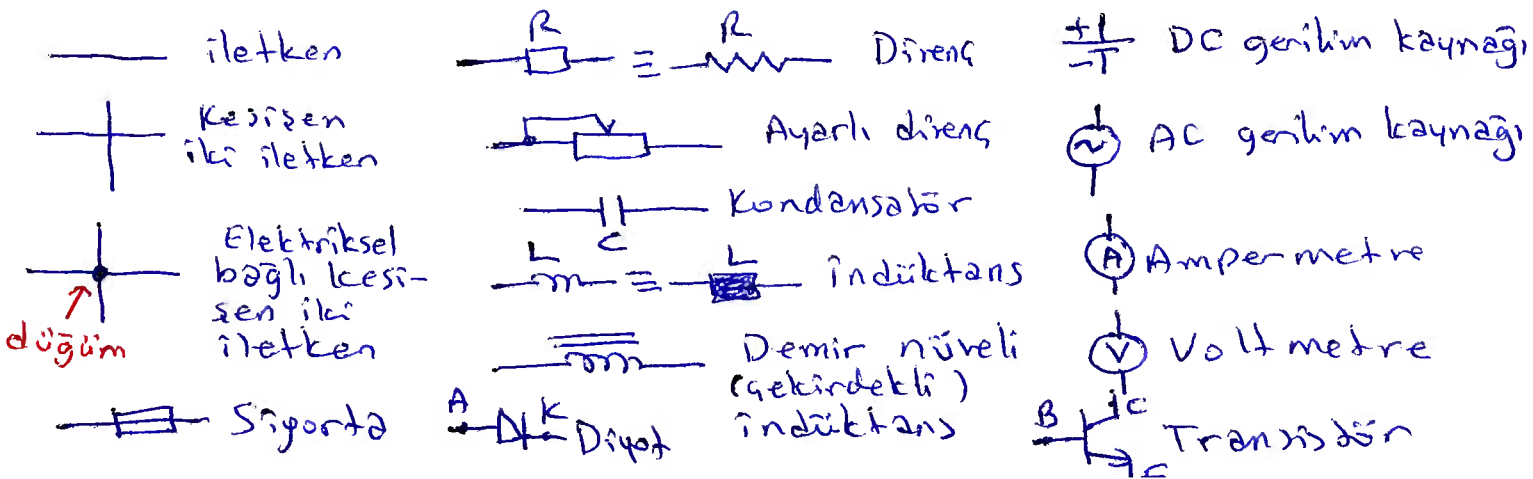 iletken
Kesişen
iki iletken
Elektriksel
bağlı kesi-
şen iki
iletken
düğüm
Sigorta
R
R
Direnç
Ayarlı direnç
Kondansatör
C
L
L
indüktans
Demir nüveli
(çekirdekli)
indüktans
A
K
Diyot
+
-
DC gerilim kaynağı
~
AC gerilim kaynağı
A
Ampermetre
V
Voltmetre
C
B
Transistör